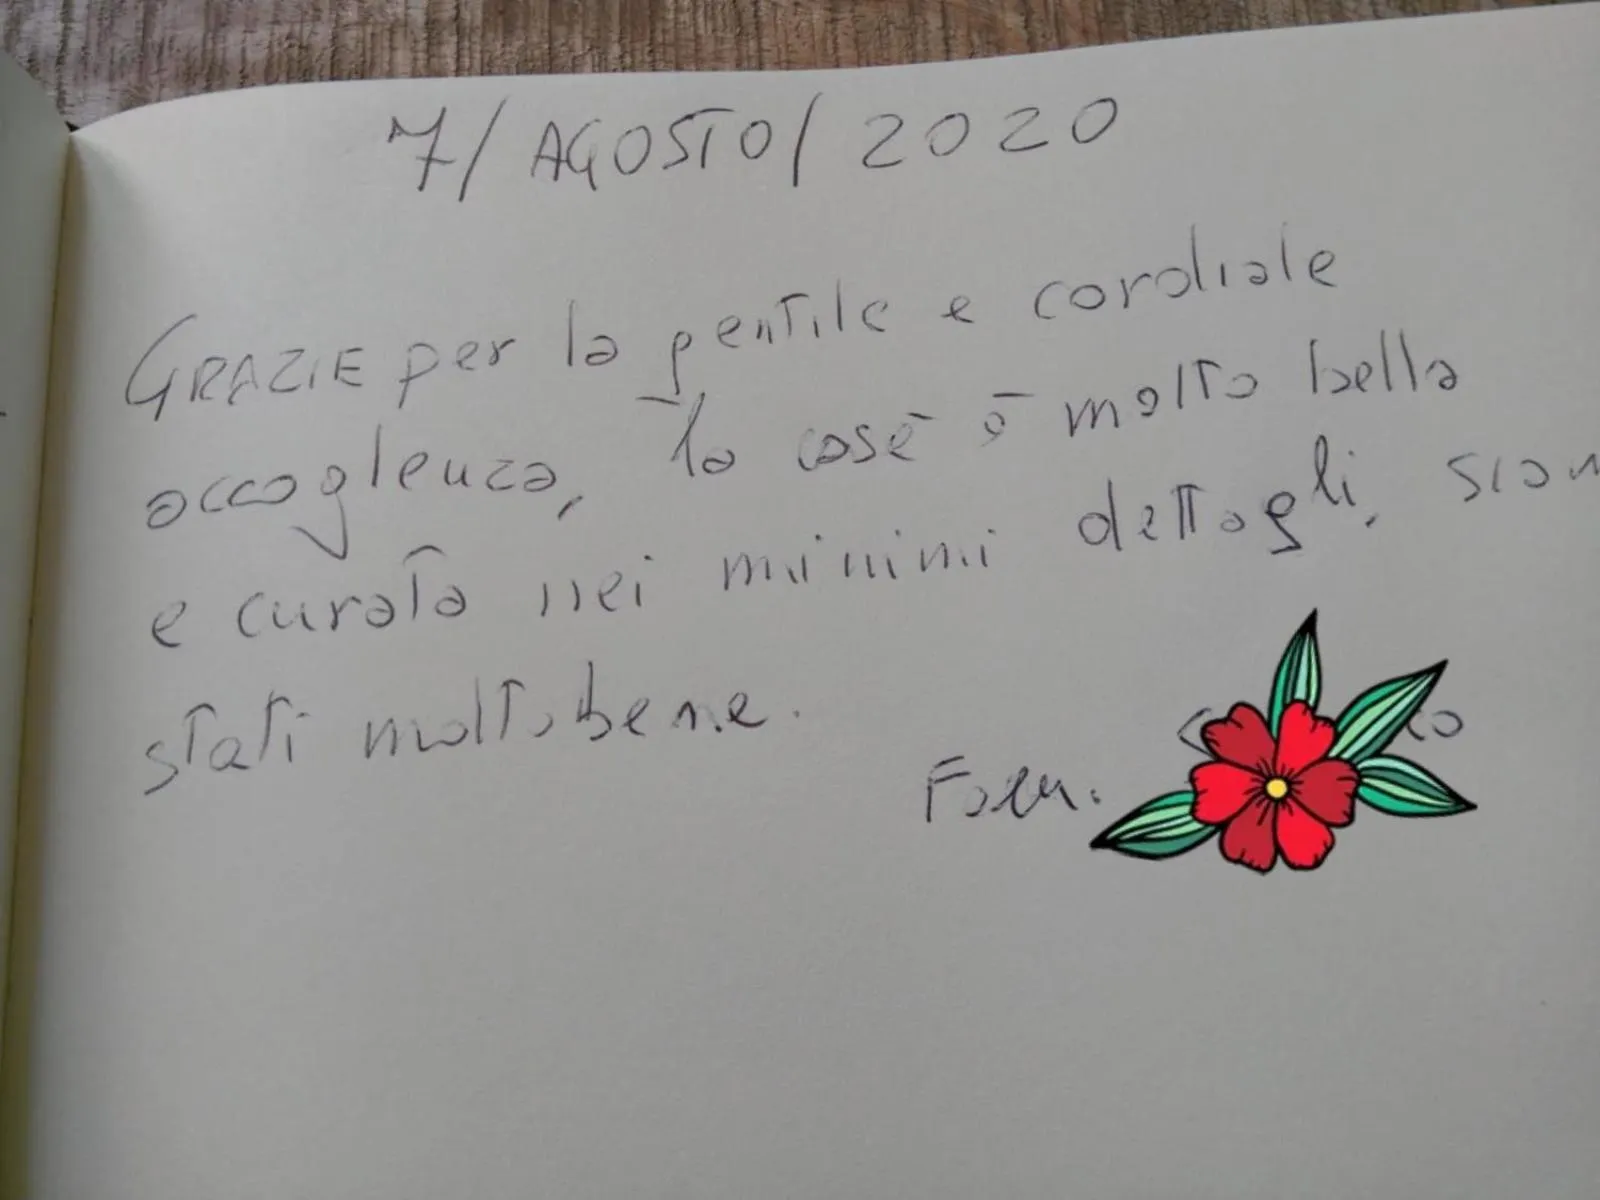 7/AGOSTO/2020
GRAZIE per la gentile e cordiale
accoglenza, la casa è molto bella
e curata nei minimi dettagli, siam
stati molto bene.
Fam.